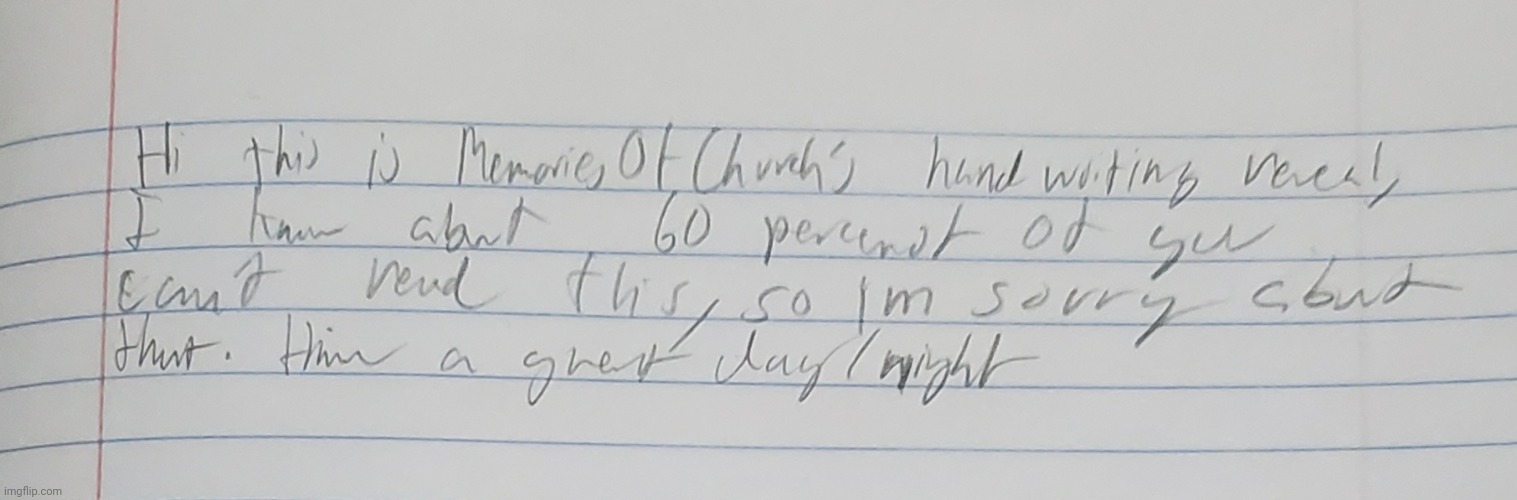 Hi this is MemoriesOfChurch's handwriting reveal,
I know about 60 percent of you
can't read this, so I'm sorry about
that. Have a great day/night
imgflip.com